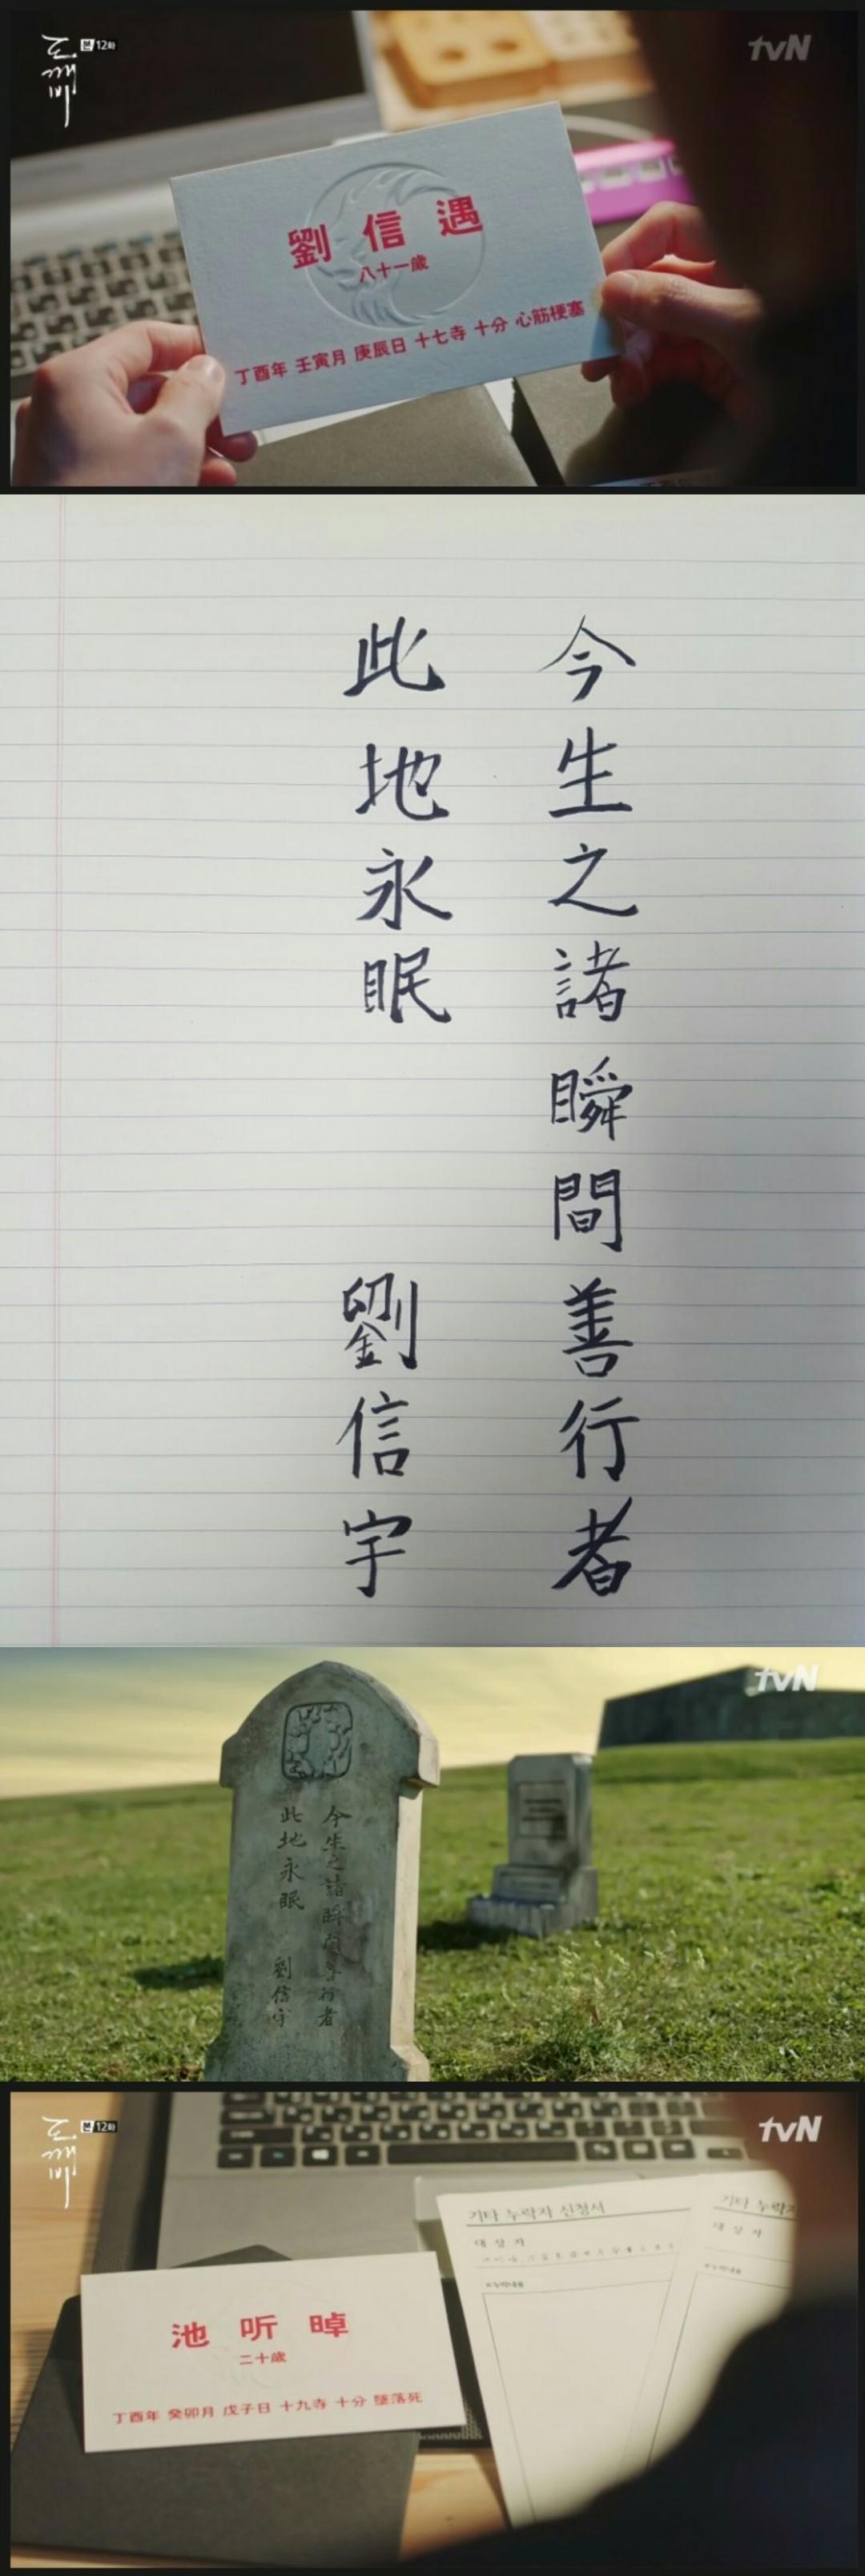 도깨비
본 12화
tvN
劉 信 遇
八十一歲
丁酉年 壬寅月 庚辰日 十七寺 十分 心筋梗塞
今生之諸瞬間善行者
此地永眠 劉信宇
tvN
今生之諸瞬間善行者
此地永眠 劉信宇
도깨비
본 12화
tvN
기타 누락자 신청서
대 상 자
기타 누락자
대 상 자
池 听 晫
二十歲
丁酉年 癸卯月 戊子日 十九寺 十分 墜落死